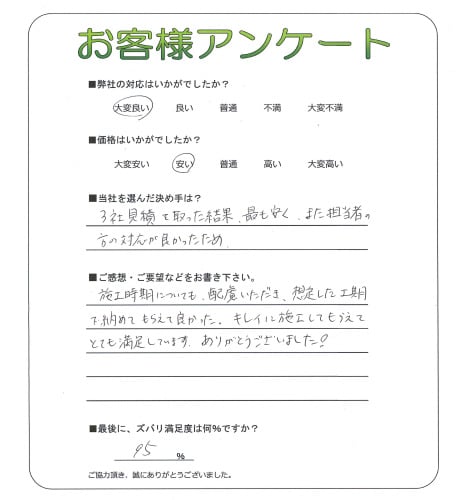 お客様アンケート
■弊社の対応はいかがでしたか？
大変良い 良い 普通 不満 大変不満
■価格はいかがでしたか？
大変安い 安い 普通 高い 大変高い
■当社を選んだ決め手は？
3社見積で取った結果、最も安く、また担当者の
方の対応が良かったため。
■ご感想・ご要望などをお書き下さい。
施工時期についても、配慮いただき、想定した工期
で納めてもらえて良かった。キレイに施工してもらえて
とても満足しています。ありがとうございました！
■最後に、ズバリ満足度は何％ですか？
95 %
ご協力頂き、誠にありがとうございました。